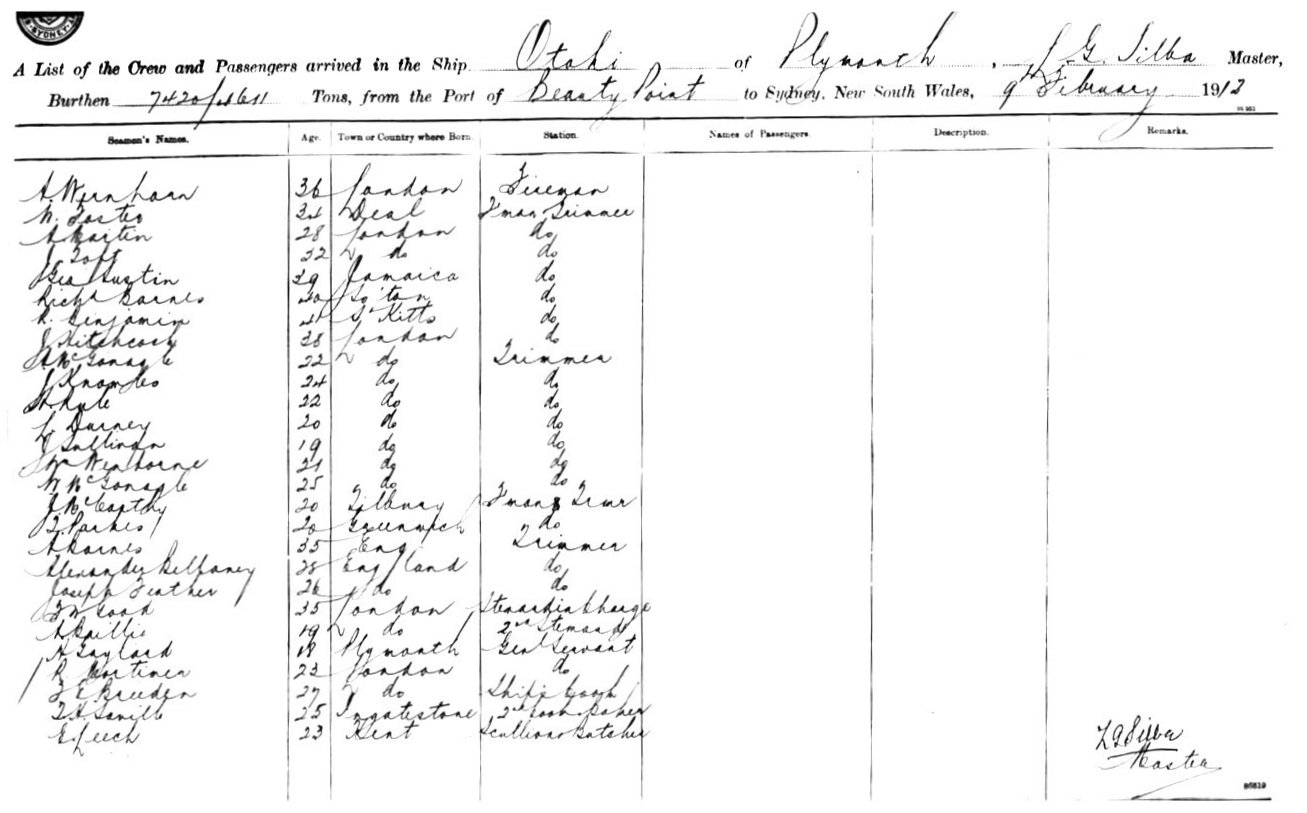 SYDNEY
A List of the Crew and Passengers arrived in the Ship Otaki of Plymouth, G. Silba Master,
Burthen 7420/ Tons, from the Port of Beauty Point to Sydney, New South Wales, 9th February 1913
Seamen's Names. Age. Town or Country where Born. Station. Names of Passengers. Description. Remarks.
A. Wernham 36 London Fireman
W. Foster 34 Deal F'man Trimmer
A. Martin 28 London do
J. Toft 32 do do
Geo Austin 39 Jamaica do
Richd Barnes 40 So'ton do
R. Benjamin 41 St Kitts do
J. Hitchcock 38 London do
A. McGonagle 22 do Trimmer
J. Knowles 24 do do
22 do do
Durney 20 do do
J. Sullivan 19 do do
Wm Wenborne 21 do do
W. McGonagle 25 do do
J. McCarthy 20 Tilbury F'man & Trmr
T. Parkes 20 Greenwich do
A. Barnes 35 Eng Trimmer
Alexander 28 England do
Joseph Feather 26 do do
F W Good 35 London Steward in Charge
A. Baillie 19 do 2nd Steward
A. Gaylard 18 Plymouth Genl Servant
R. Mortimer 23 London do
Breeden 27 do Ship's Cook
Saville 25 Ingatestone 2nd Cook & Baker
E. Leech 23 Kent Scullion & Butcher
Silba
Master